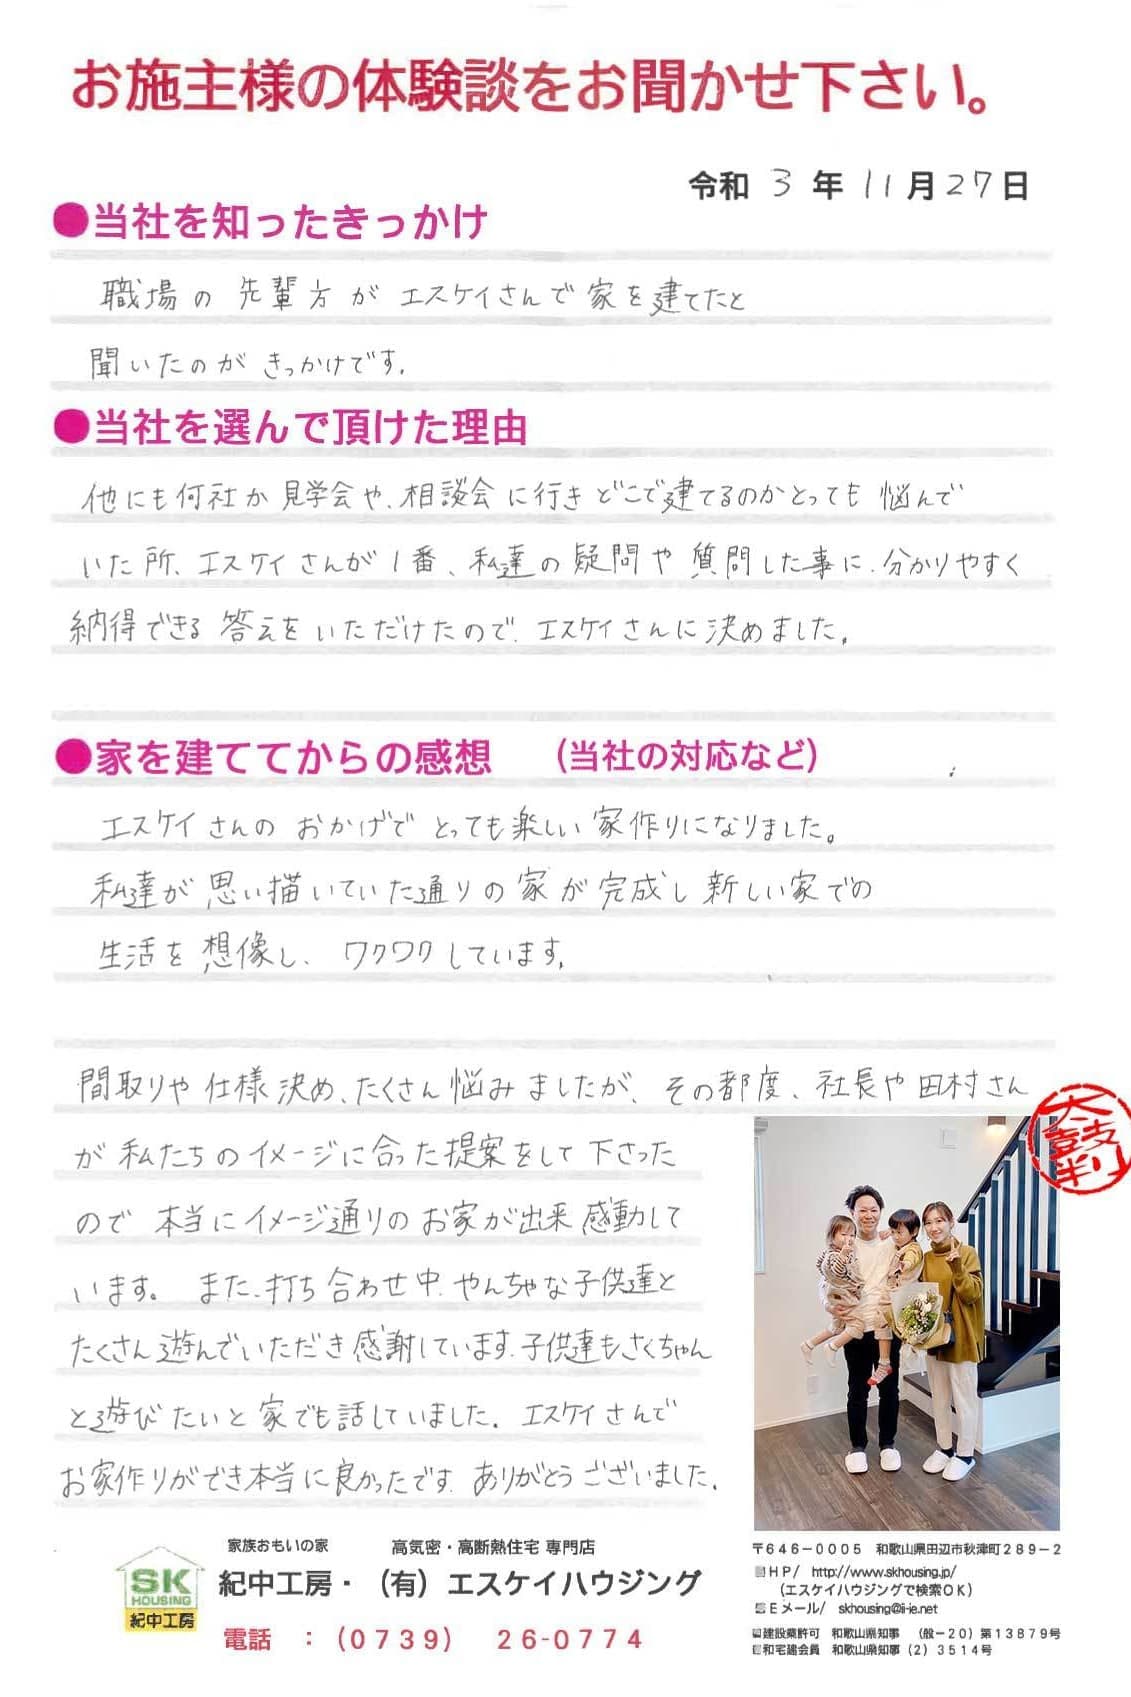 お施主様の体験談をお聞かせ下さい。
令和 3 年 11 月 27 日
●当社を知ったきっかけ
職場の先輩方がエスケイさんで家を建てたと
聞いたのがきっかけです。
●当社を選んで頂けた理由
他にも何社か見学会や、相談会に行きどこで建てるのかとっても悩んで
いた所、エスケイさんが1番、私達の疑問や質問した事に、分かりやすく
納得できる答えをいただけたので、エスケイさんに決めました。
●家を建ててからの感想 (当社の対応など)
エスケイさんのおかげでとっても楽しい家作りになりました。
私達が思い描いていた通りの家が完成し新しい家での
生活を想像し、ワクワクしています。
間取りや仕様決め、たくさん悩みましたが、その都度、社長や田村さん
が私たちのイメージに合った提案をして下さった
ので本当にイメージ通りのお家が出来感動して
います。また、打ち合わせ中、やんちゃな子供達と
たくさん遊んでいただき感謝しています。子供達もさくちゃん
と遊びたいと家でも話していました。エスケイさんで
お家作りができ本当に良かったです。ありがとうございました。
太鼓判
家族おもいの家 高気密・高断熱住宅 専門店
SK
HOUSING
紀中工房
紀中工房・(有)エスケイハウジング
電話 :(0739) 26-0774
〒646-0005 和歌山県田辺市秋津町289-2
HP/ http://www.skhousing.jp/
(エスケイハウジングで検索OK)
Eメール/ skhousing@i-ie.net
建設業許可 和歌山県知事 (般-20)第13879号
和宅建会員 和歌山県知事(2)3514号